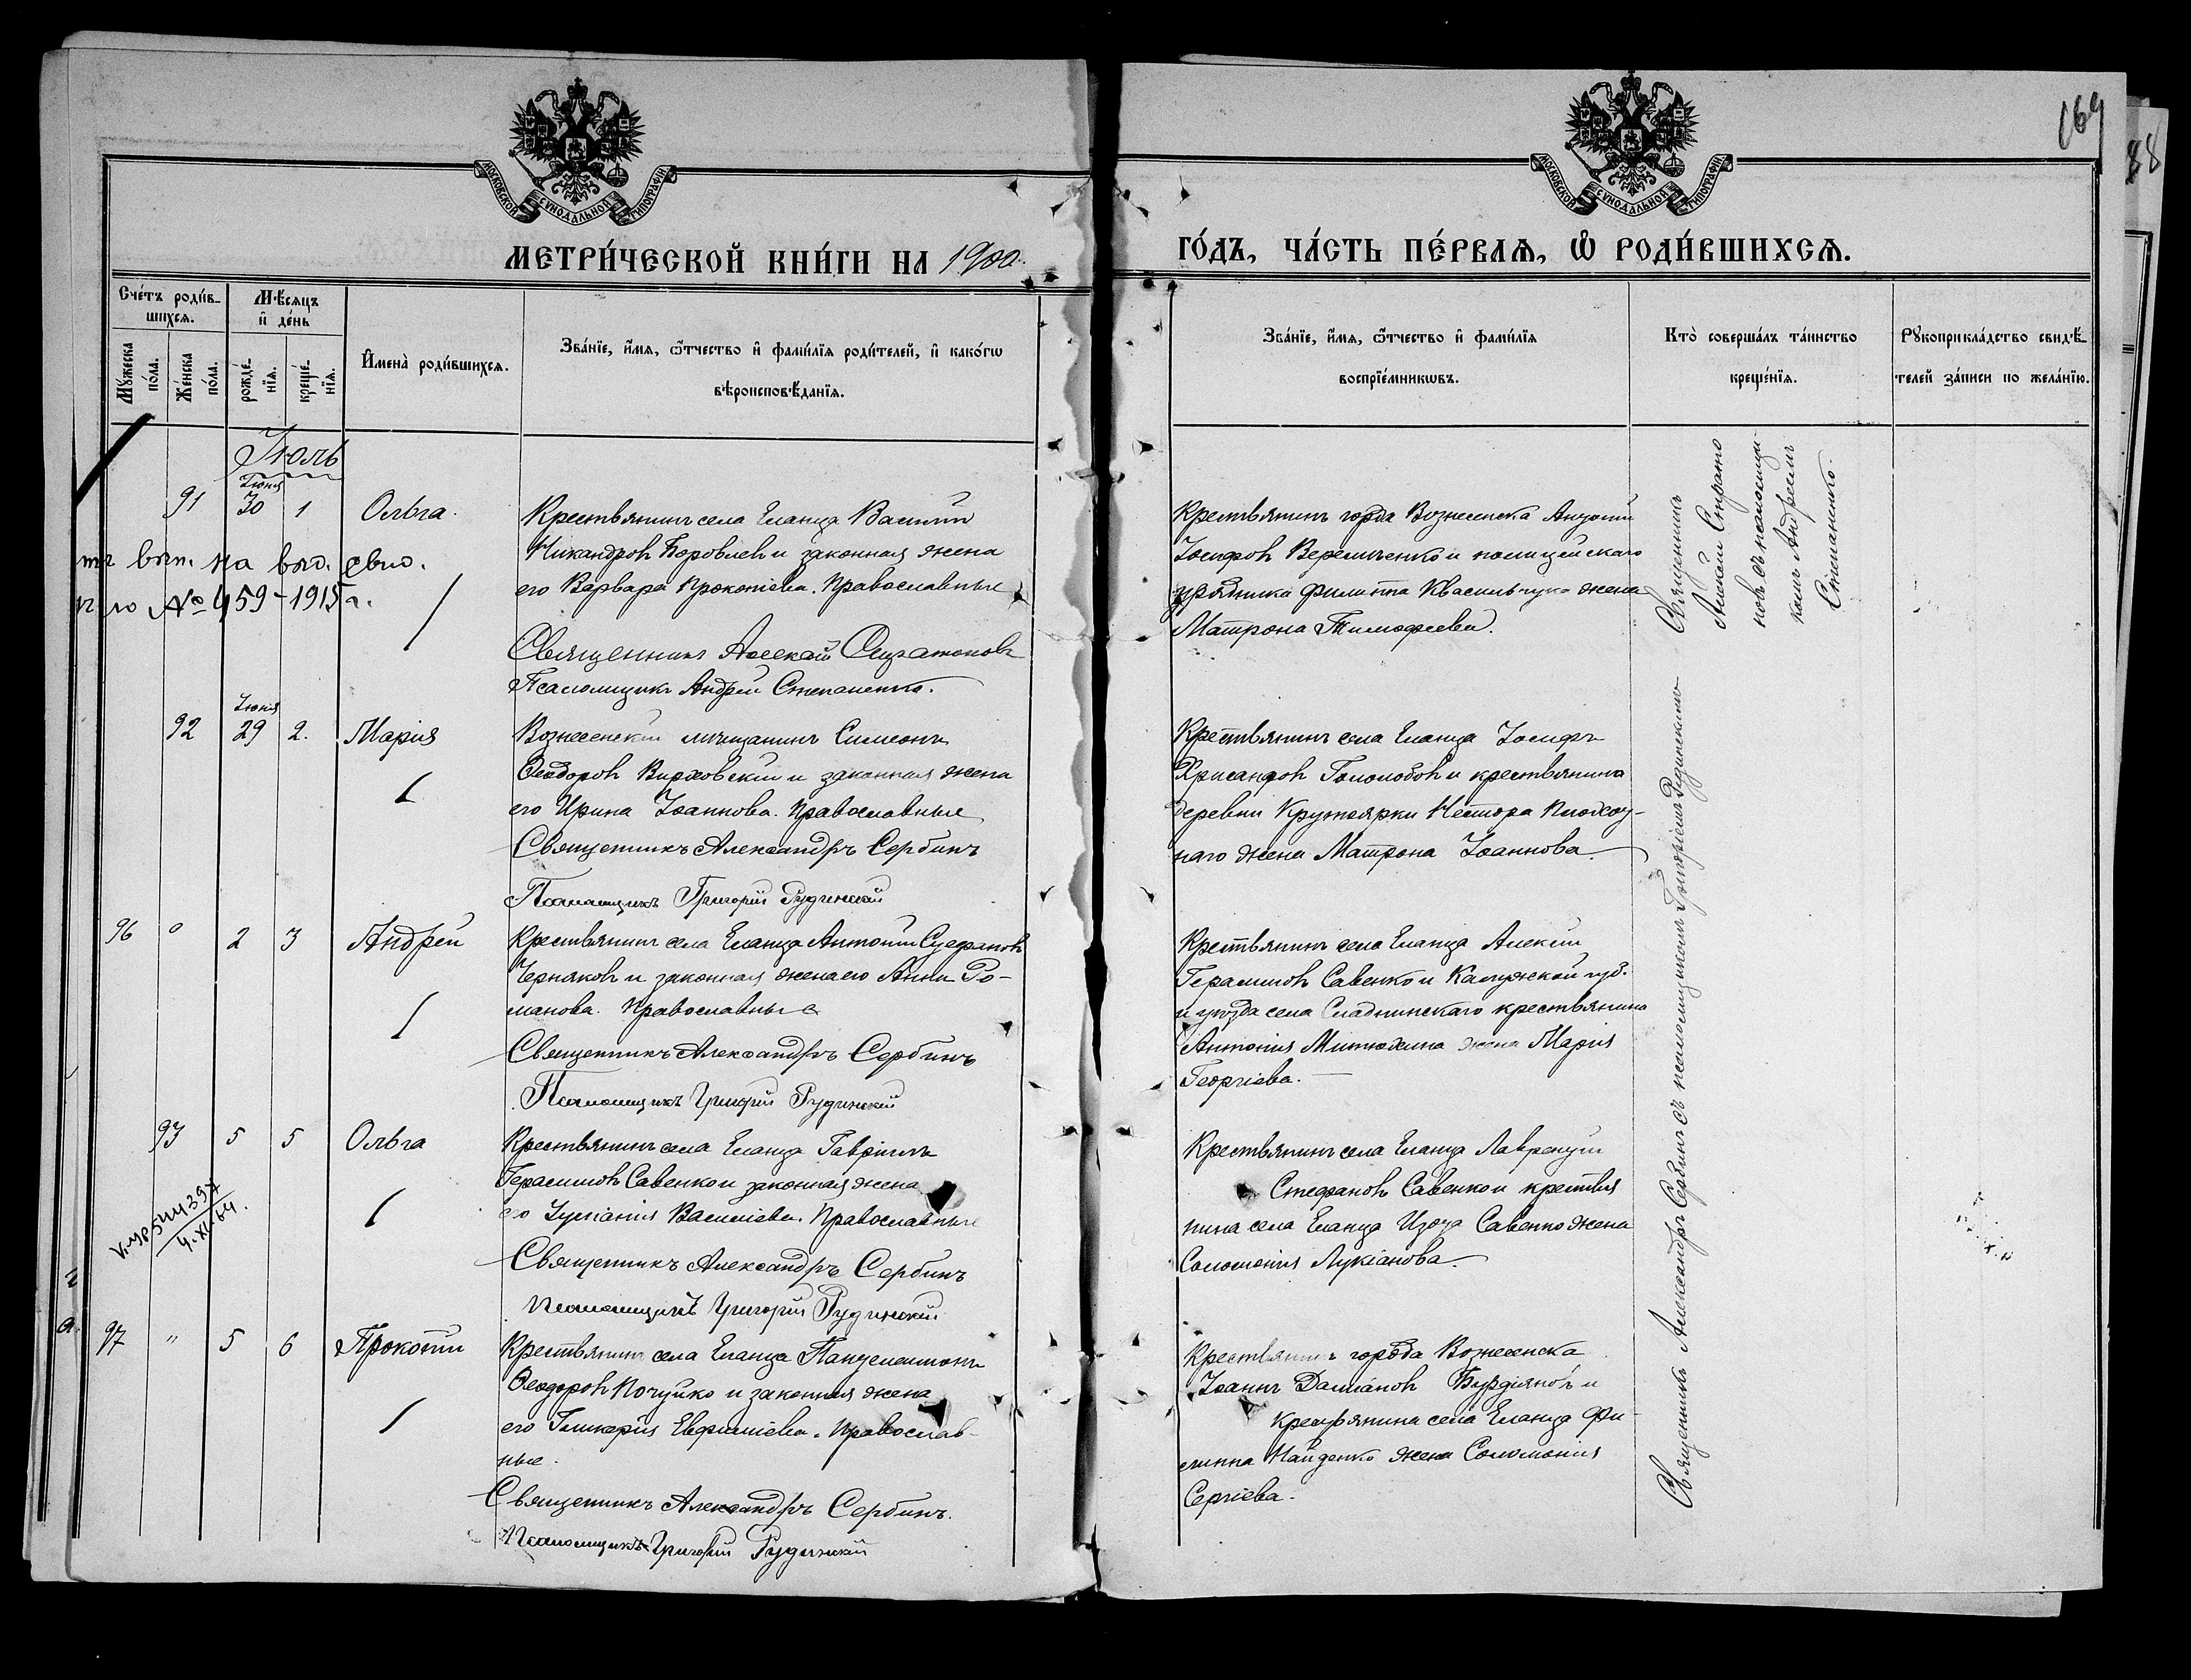 169
88
МОСКОВСКОЙ СѴНОДАЛЬНОЙ ТИПОГРАФІИ
МОСКОВСКОЙ СѴНОДАЛЬНОЙ ТИПОГРАФІИ
МЕТРИ́ЧЕСКОЙ КНИ́ГИ НА 1900.
ГО́ДЪ, ЧА́СТЬ ПЕ́РВАЯ, Ѡ РОДИ́ВШИХСЯ.
Сче́тъ роди́в-
шихся.
Мѣ́сяцъ
и де́нь
Мꙋ́жеска по́ла.
Же́нска по́ла.
рожде́-нїя.
креще́-нїя.
Имена̀ роди́вшихся.
Зва́нїе, и́мя, ѻ́тчество и фами́лїя роди́телей, и како́гѡ
вѣроисповѣ́данїя.
Зва́нїе, и́мя, ѻ́тчество и фами́лїя
воспрїе́мникѡвъ.
Кто̀ соверша́лъ та́инство
креще́нїя.
Рꙋкоприкла́дство свидѣ́-
телей за́писи по жела́нїю.
Іюль
91
Іюня
30 1
Ольга.
Крестьянинъ села Еланца Василій
Никандровъ Боровлевъ и законная жена
его Варвара Прокопіева. Православные
Священникъ Алексій Стратоновъ
Псаломщикъ Андрей Степаненко.
Крестьянинъ города Вознесенска Антоній
Іосифовъ Веремиенко и полицейскаго
урядника Филиппа Квасильчука жена
Матрона Тимофеева.
Священникъ
Алексій Страто
новъ съ псаломщи-
комъ Андреемъ
Степаненко.
вып. на выд. свид.
№ 459-1915 г.
92
Іюня
29 2.
Марія
Вознесенскій мѣщанинъ Симеонъ
Ѳеодоровъ Вирховскій и законная жена
его Ирина Іоаннова. Православные
Священникъ Александръ Сербинъ
Псаломщикъ Григорій Рудинскій
Крестьянинъ села Еланца Іосифъ
Хрисанфовъ Голомобовъ и крестьянина
деревни Крутоярки Нестора
наго жена Матрона Іоаннова.
96 " 2 3
Андрей
Крестьянинъ села Еланца Антоній Стефановъ
Черняковъ и законная жена его Анна Ро-
манова. Православные
Священникъ Александръ Сербинъ
Псаломщикъ Григорій Рудинскій
Крестьянинъ села Еланца Алексій
Герасимовъ Савенко и Калужской губ.
и уѣзда села Сладнинскаго крестьянина
Антонія Митюхина жена Марія
Георгіева.
93 5 5
Ольга
Крестьянинъ села Еланца Гавріилъ
Герасимовъ Савенко и законная жена
его Іуліанія Василіева. Православные
Священникъ Александръ Сербинъ
Псаломщикъ Григорій Рудинскій
Крестьянинъ села Еланца Лаврентій
Стефановъ Савенко и крестья
нина села Еланца Изота Савенко жена
Соломонія Лукіанова.
544397
4.XI-64.
97 " 5 6
Прокопій
Крестьянинъ села Еланца Пантелеимонъ
Ѳеодоровъ Почуйко и законная жена
его Гликерія Евфиміева. Православ-
ные.
Священникъ Александръ Сербинъ.
Псаломщикъ Григорій Рудинскій
Крестьянинъ города Вознесенска
Іоаннъ Даміановъ Бурдіяновъ и
крестьянина села Еланца Фи-
липпа Найденко жена Соломонія
Сергіева.
Священникъ Александръ Сербинъ съ псаломщикомъ Григоріемъ Рудинскимъ